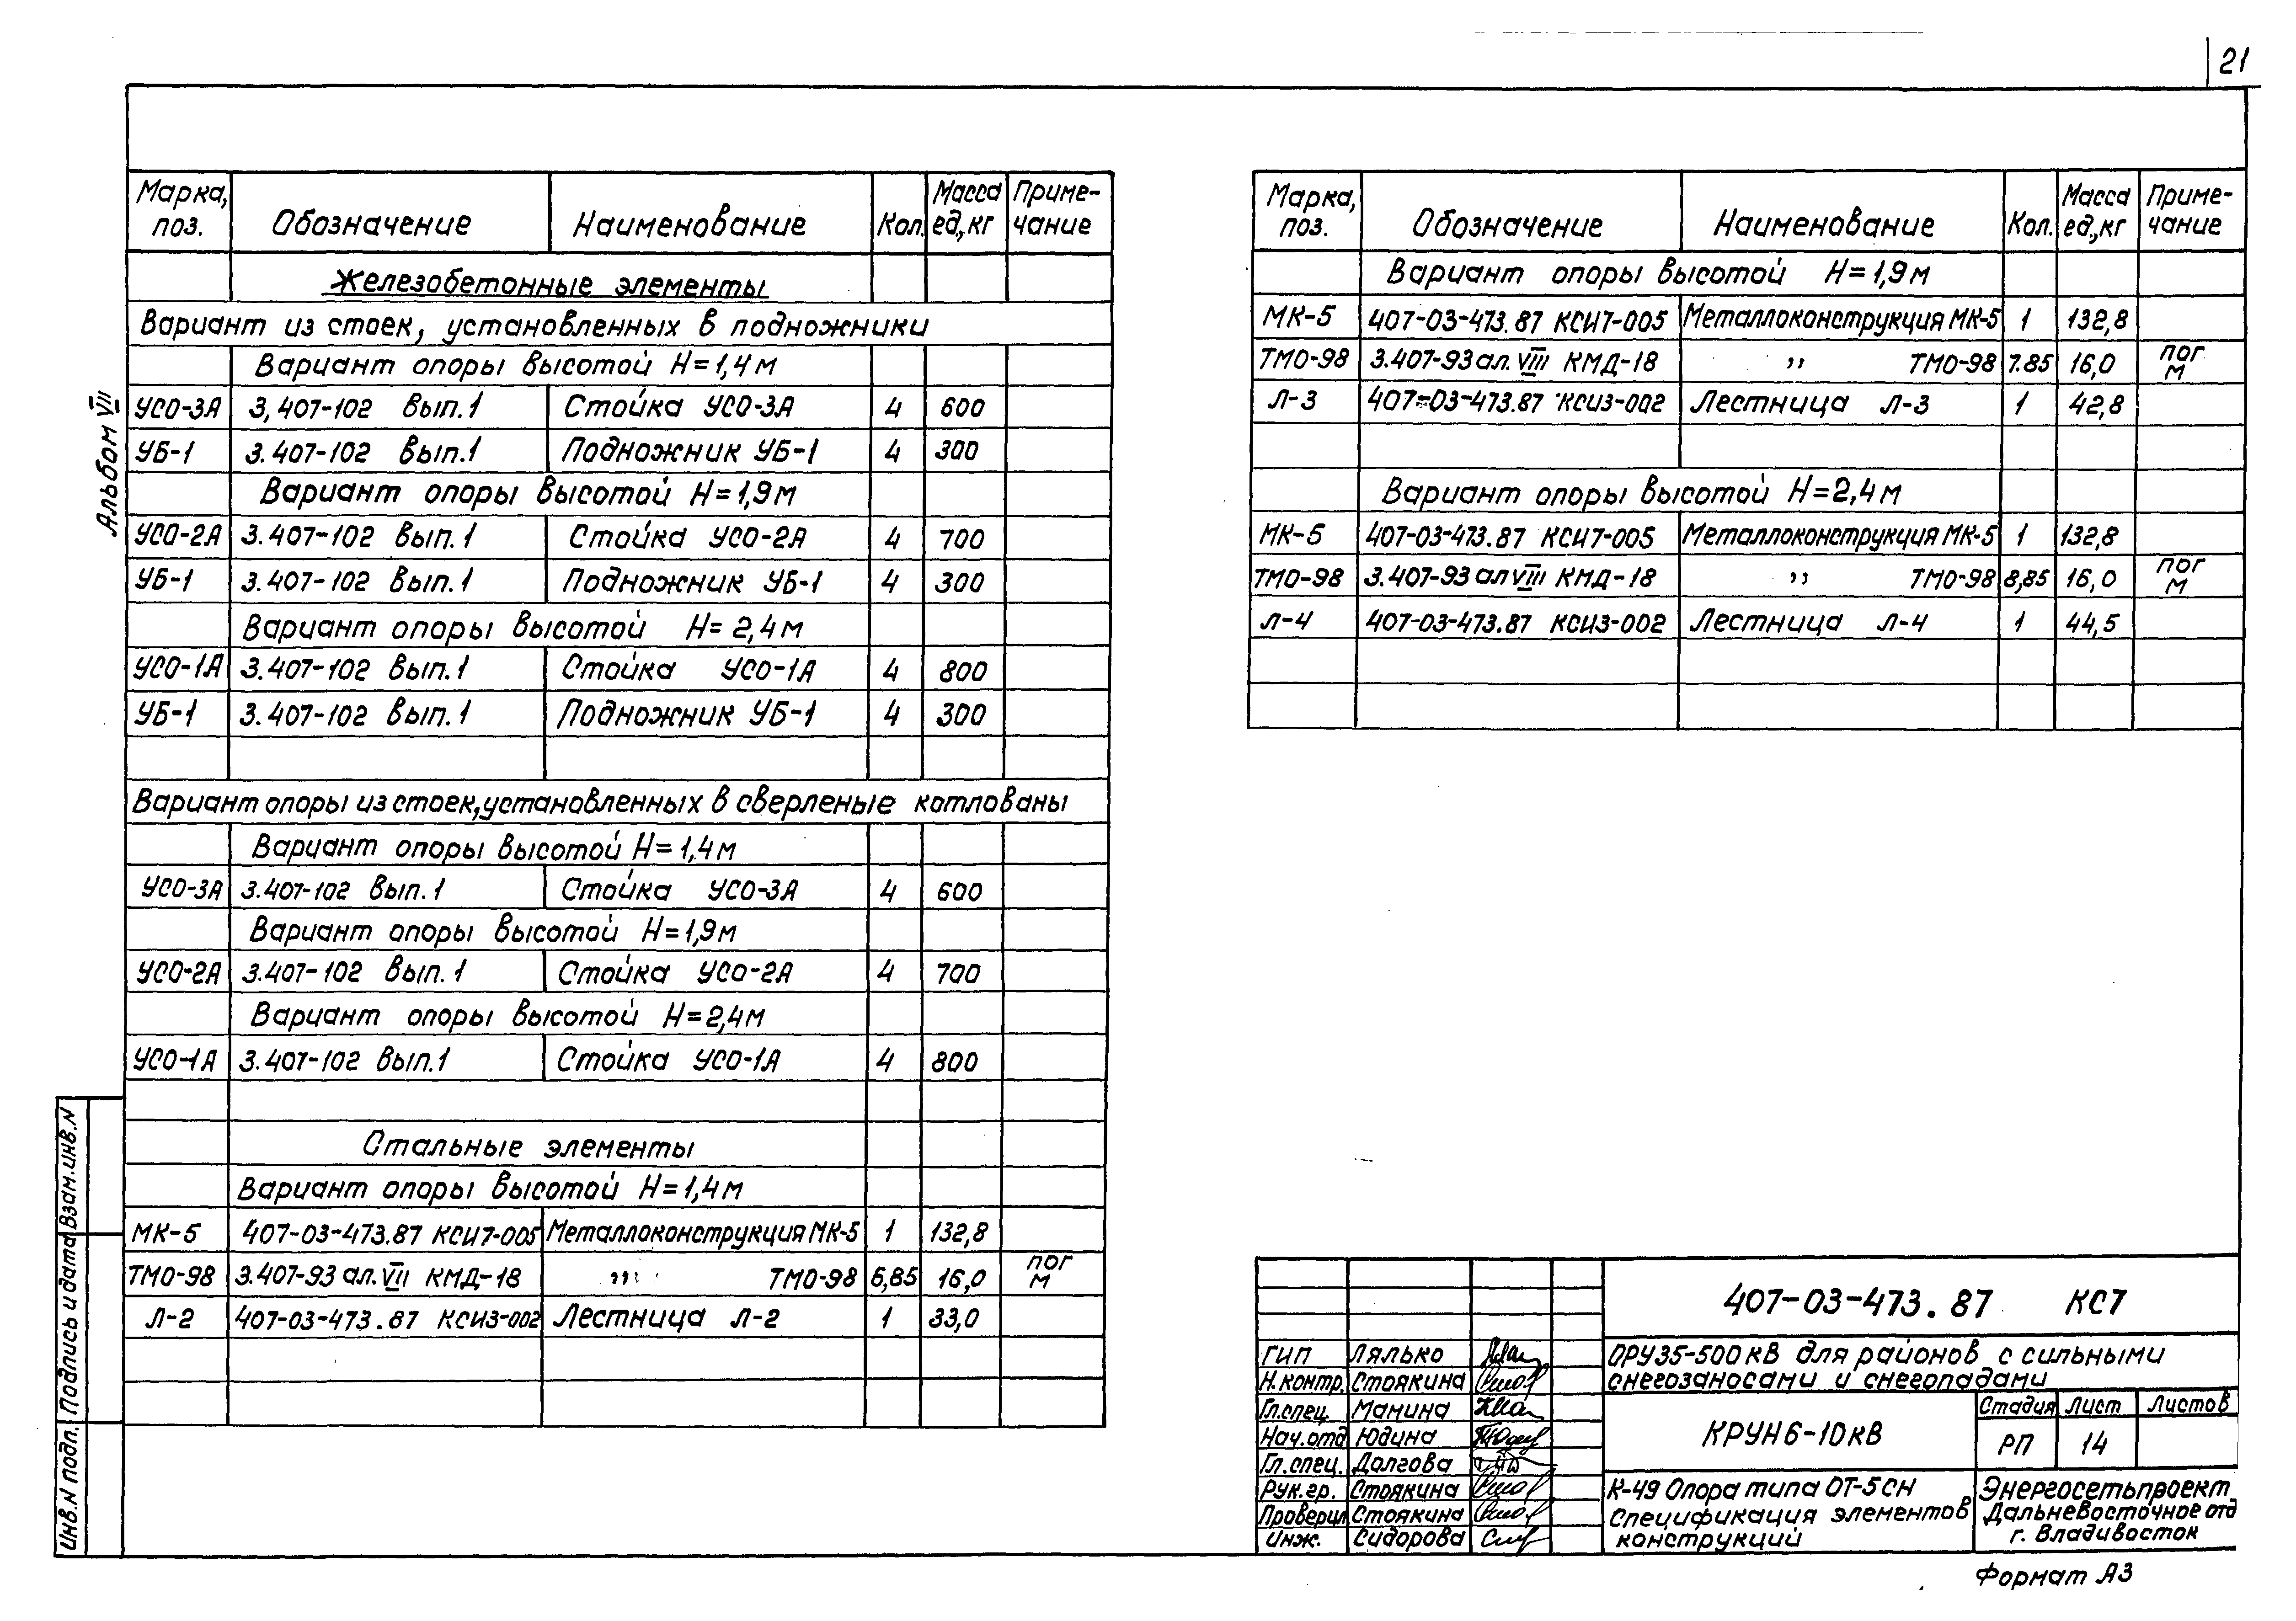 21
Альбом VII
Марка, поз. Обозначение Наименование Кол. Масса ед.,кг Приме-чание
Железобетонные элементы
Вариант из стоек, установленных в подножники
Вариант опоры высотой Н=1,4м
УСО-3А 3,407-102 Вып.1 Стойка УСО-3А 4 600
УБ-1 3.407-102 Вып.1 Подножник УБ-1 4 300
Вариант опоры высотой Н=1,9м
УСО-2А 3.407-102 Вып.1 Стойка УСО-2А 4 700
УБ-1 3.407-102 Вып.1 Подножник УБ-1 4 300
Вариант опоры высотой Н=2,4м
УСО-1А 3.407-102 Вып.1 Стойка УСО-1А 4 800
УБ-1 3.407-102 Вып.1 Подножник УБ-1 4 300
Вариант опоры из стоек,установленных в сверленые котлованы
Вариант опоры высотой Н=1,4м
УСО-3А 3.407-102 Вып.1 Стойка УСО-3А 4 600
Вариант опоры высотой Н=1,9м
УСО-2А 3.407-102 Вып.1 Стойка УСО-2А 4 700
Вариант опоры высотой Н=2,4м
УСО-1А 3.407-102 Вып.1 Стойка УСО-1А 4 800
Стальные элементы
Вариант опоры высотой Н=1,4м
МК-5 407-03-473.87 КСИ7-005 Металлоконструкция МК-5 1 132,8
ТМО-98 3.407-93 ал. VIII КМД-18 ,, ТМО-98 6,85 16,0 пог м
Л-2 407-03-473.87 КСИ3-002 Лестница Л-2 1 33,0
Марка, поз. Обозначение Наименование Кол. Масса ед.,кг Приме-чание
Вариант опоры высотой Н=1,9м
МК-5 407-03-473.87 КСИ7-005 Металлоконструкция МК-5 1 132,8
ТМО-98 3.407-93 ал. VIII КМД-18 ,, ТМО-98 7.85 16,0 пог м
Л-3 407-03-473.87 КСИ3-002 Лестница Л-3 1 42,8
Вариант опоры высотой Н=2,4м
МК-5 407-03-473.87 КСИ7-005 Металлоконструкция МК-5 1 132,8
ТМО-98 3.407-93 ал VIII КМД-18 ,, ТМО-98 8,85 16,0 пог м
Л-4 407-03-473.87 КСИ3-002 Лестница Л-4 1 44,5
Инв.N подл. Подпись и дата Взам.инв.N
407-03-473.87 КС7
ГИП Лялько
Н.контр. Стоякина
Гл.спец. Мамина
Нач.отд Юдина
Гл.спец. Долгова
Рук.гр. Стоякина
Проверил Стоякина
Инж. Сидорова
ОРУ35-500кВ для районов с сильными
снегозаносами и снегопадами
КРУН6-10кВ
Стадия Лист Листов
РП 14
К-49 Опора типа ОТ-5СН
Спецификация элементов
конструкций
Энергосетьпроект
Дальневосточное отд
г. Владивосток
Формат А3